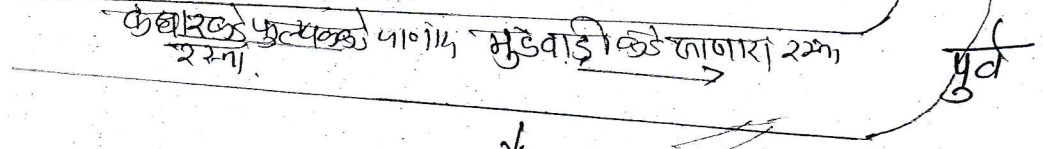 कंधारकडे फुलवळकडे जाणारा मुंडेवाडीकडे जाणारा रस्ता
रस्ता.
पुर्व